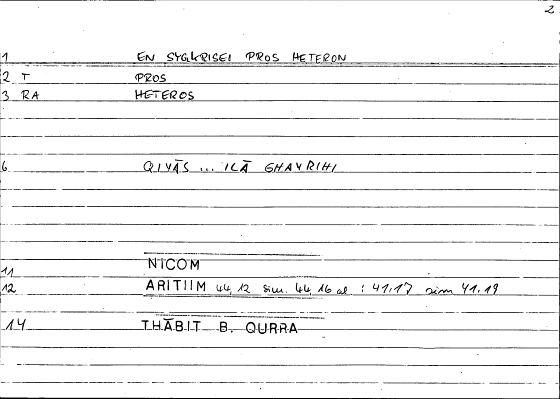 2
1 EN SYGKRISEI PROS HETERON
2 T PROS
3 RA HETEROS
6 QIYĀS ... ILĀ GHAYRIHI
11 NICOM
12 ARITIIM 44,12 sim. 44,16 al : 41.17 sim 41.19
14 THĀBIT B. QURRA